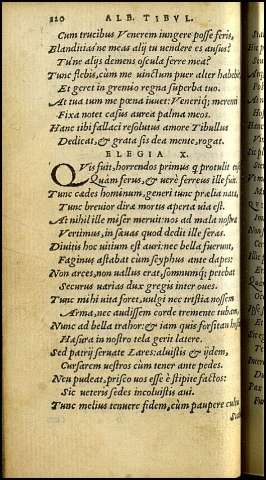 220 ALB. TIBVL.
Cum trucibus Venerem iungere posse feris,
Blanditias'ne meas alij tu uendere es ausus?
Tu'ne alijs demens oscula ferre mea?
Tunc flebis, cum me uinctum puer alter habebit,
Et geret in gremio regna superba tuo.
At tua tum me pœna iuuet: Veneriq; merenti
Fixa notet casus aurea palma meos.
Hanc tibi fallaci resolutus amore Tibullus
Dedicat, & grata sis dea mente, rogat.
ELEGIA X.
QVis fuit, horrendos primus q protulit enses?
Quàm ferus, & uerè ferreus ille fuit.
Tunc cædes hominum, generi tunc prælia nata,
Tunc breuior diræ mortis aperta uia est.
At nihil ille miser meruit: nos ad mala nostra
Vertimus, in sæuas quod dedit ille feras.
Diuitis hoc uitium est auri: nec bella fuerunt,
Faginus astabat cum scyphus ante dapes:
Non arces, non uallus erat, somnumq; petebat
Securus uarias dux gregis inter oues.
Tunc mihi uita foret, uulgi nec tristia nossem
Arma, nec audissem corde tremente tubam.
Nunc ad bella trahor: & iam quis forsitan hostis
Hæsura in nostro tela gerit latere.
Sed patrij seruate Lares: aluistis & ijdem,
Cursarem uestros cum tener ante pedes.
Neu pudeat, prisco uos esse è stipite factos:
Sic ueteris sedes incoluistis aui.
Tunc melius tenuere fidem, cum paupere cultu